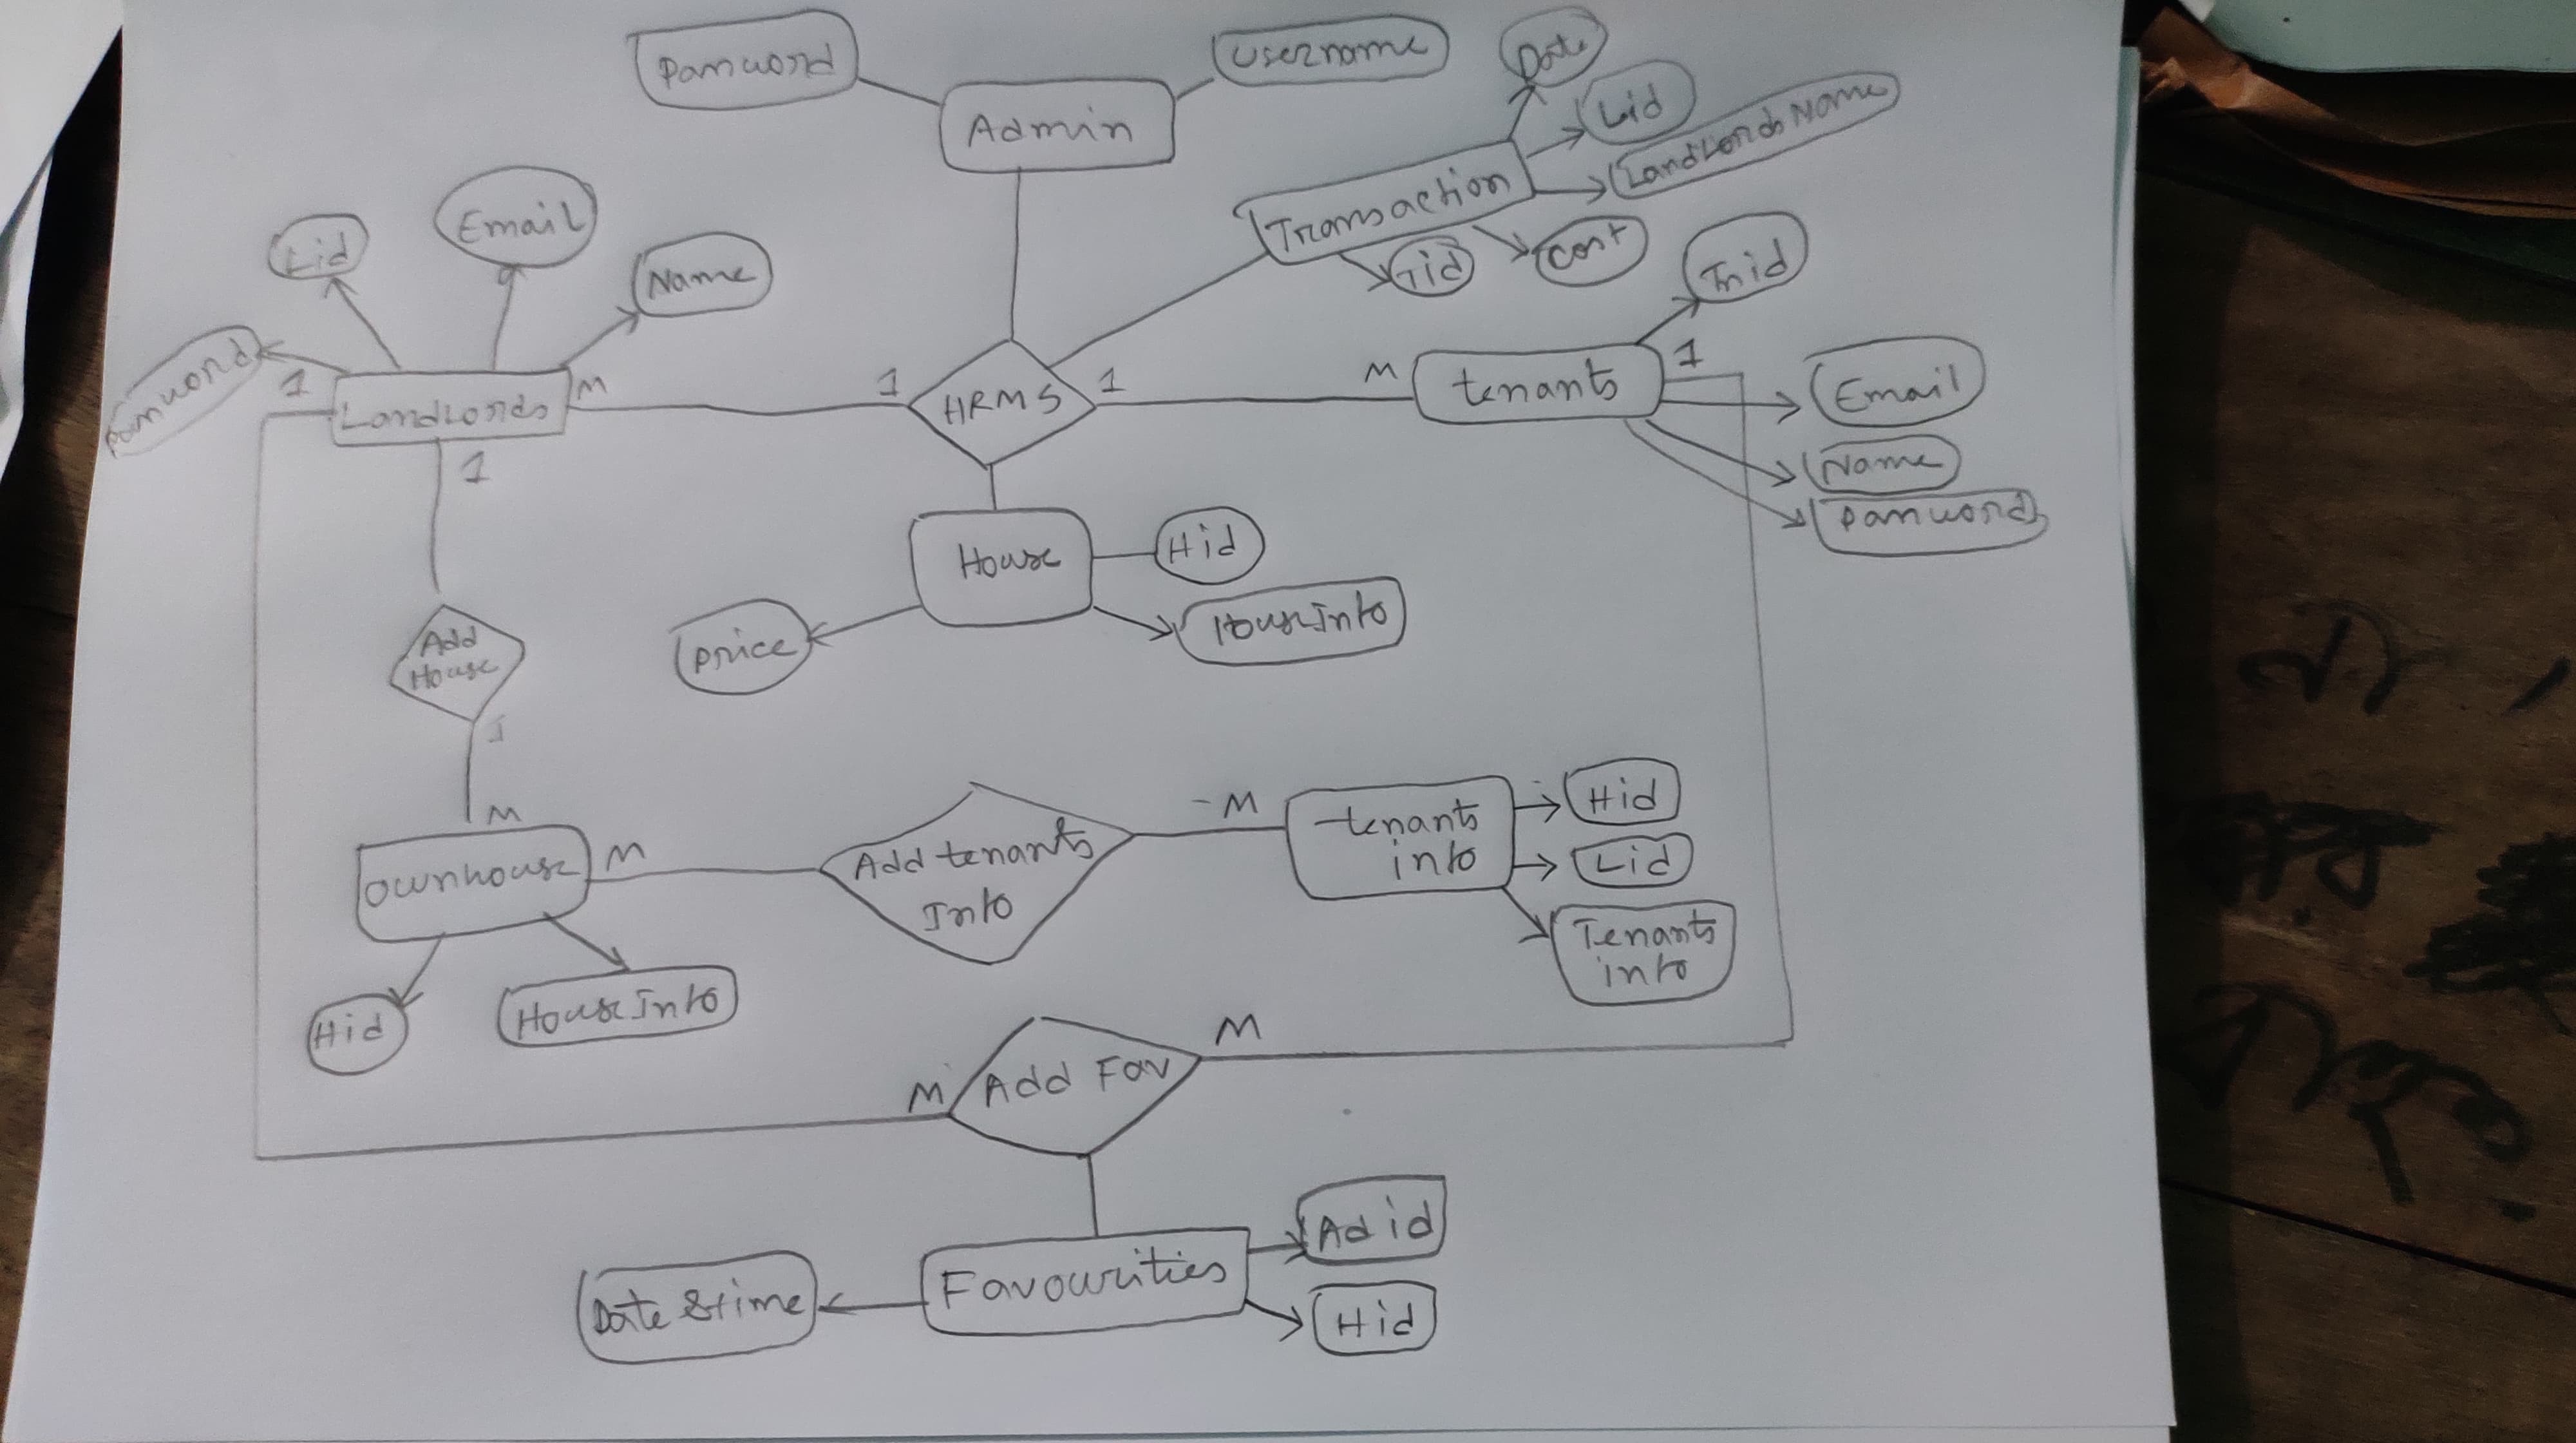 Password
Username
Date
Admin
Lid
LandLords Name
Transaction
Tid
Cost
Lid
Email
Name
Tnid
Password
1
LandLords
M
1
HRMS
1
M
tenants
1
Email
Name
Password
1
House
Hid
House Info
Price
Add
House
1
M
Ownhouse
M
Add tenants
Info
M
tenants
info
Hid
Lid
Tenants
info
Hid
House Info
M
M
Add Fav
Favourities
Ad id
Hid
Date & time